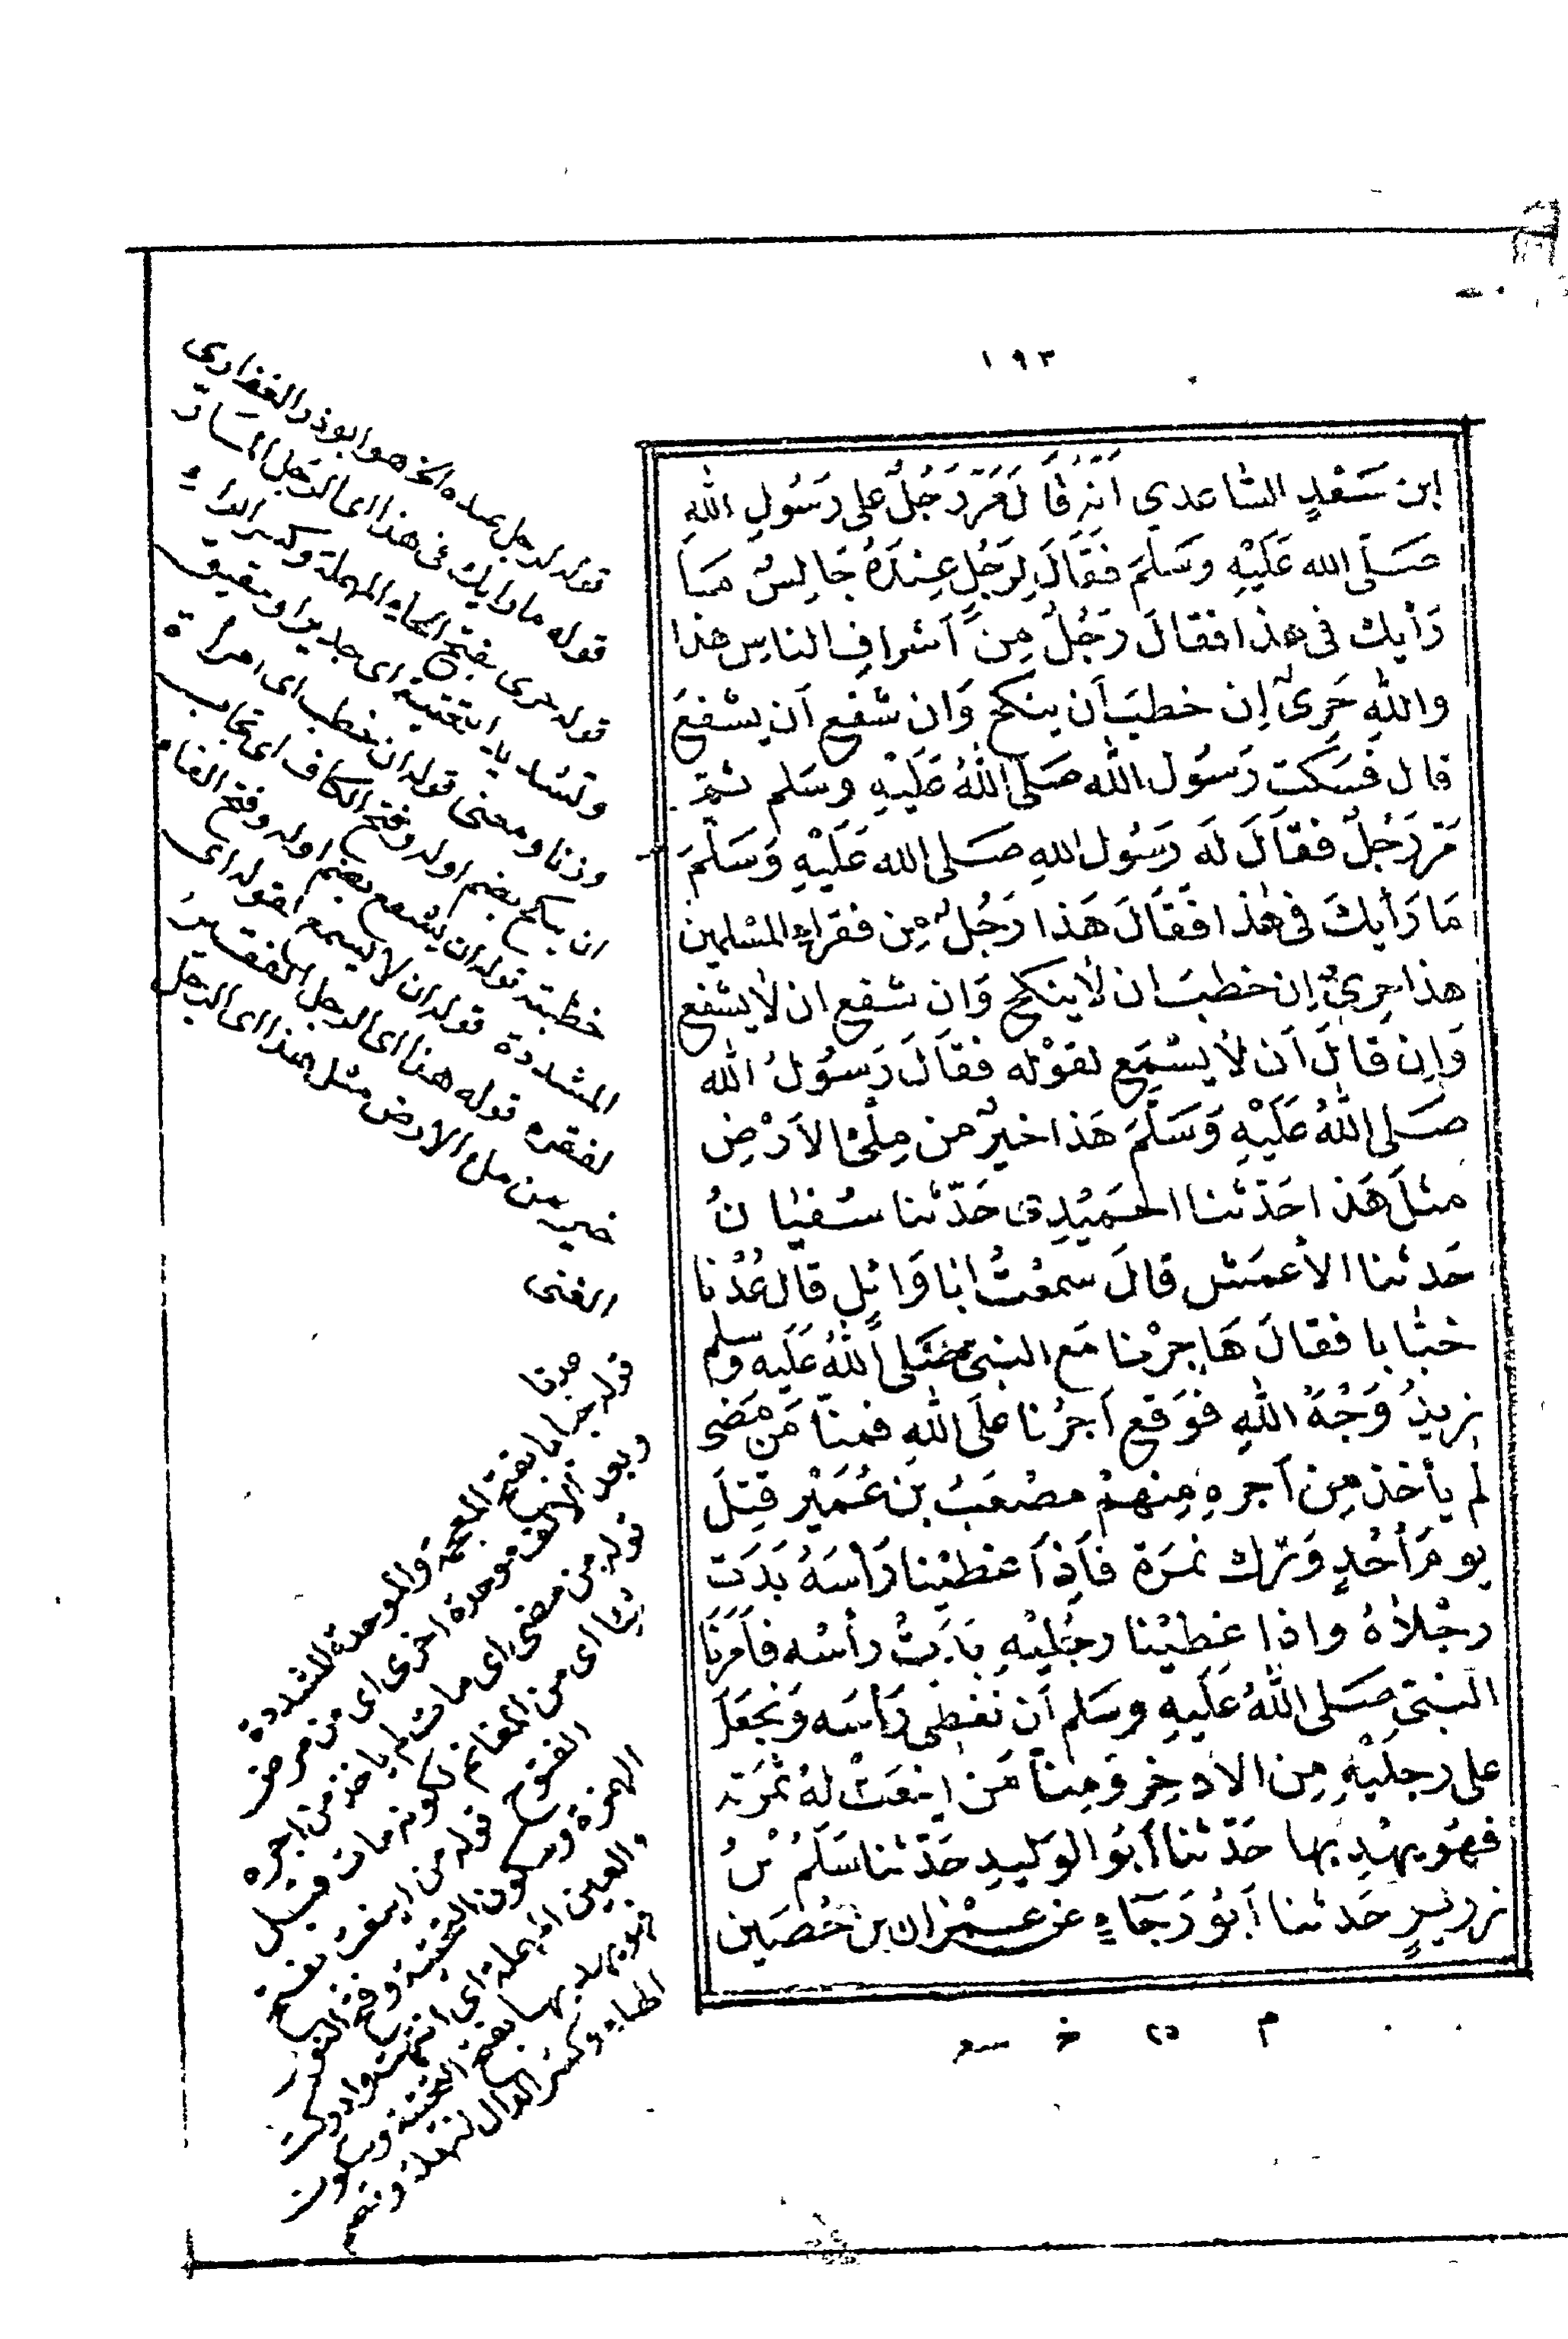 ١٩٣
ابن سَعْدٍ السَّاعدي اَنَّهُ قَالَ مَرَّ رَجُلٌ على رَسُولِ اللهِ
صَلَّى الله عَلَيْهِ وَسَلَّمَ فَقَالَ لِرَجُلٍ عِنْدَهُ جَالِسٌ مَا
رَأْيكَ فى هذا فقالَ رَجُلٌ مِنْ اَشْرافِ الناسِ هذا
واللهِ حَرِىٌّ اِن خطبَ اَن ينكح وَان شفع اَن يشفعَ
قال فسَكت رَسُول الله صَلَّى اللهُ عَلَيْهِ وسَلم ثمَّ
مَرّ رَجُلٌ فقَالَ لَه رَسُول اللهِ صَلى الله عَلَيْهِ وَسَلَّمَ
مَا رَأيكَ فى هٰذا فَقَالَ هَذا رَجُلٌ مِن فقرَاءِ المسْلمين
هذا حرِىٌّ اِن خطبَ ان لاَ ينكح وَان شفع ان لاَ يشفع
وَاِن قالَ اَن لاَ يسْمَع لقوْله فقَالَ رَسُولُ الله
صَلى اللهُ عَلَيْهِ وَسَلَّمَ هَذا خيرٌ من مِلْئ الاَرْضِ
مثلَ هَذا حَدّثنا الحمَيْدِى حَدّثنا سُفيَانُ
حَدثنا الاَعمَش قالَ سمعْتُ ابا وَائِلٍ قال عُدْنا
خبَّابا فقالَ هَاجرْنا مَع النبىّ صَلى اللهُ عَلَيه وسلم
نريدُ وَجْهَ اللهِ فوَقع اَجرُنا علَى اللهِ فمنّا مَن مَضى
لم يأخذ مِن اَجرهِ مِنهمْ مصْعَبُ بن عُمَيْر قتِلَ
يومَ اُحُدٍ وَترك نمرَة فاَِذا غطيْنا رَأسَهُ بَدَت
رجْلاَهُ واذا غطيْنا رجْليْهِ بَدَتْ رأسُه فاَمَرَنَا
النبىّ صَلى اللهُ عَلَيهِ وسَلم اَن نغطى رَأسَه وَنجعَلَ
على رجليْهِ مِن الاذخِرِ وَمِناّ مَن اينعَتْ لهُ ثمَرَته
فهُو يهْدِبها حَدّثنا اَبُو الوَليدِ حَدّثنا سَلْمُ بْنُ
زريرٍ حَدثنا اَبُو رَجَاءٍ عن عمْران بن حُصَين
م ٢٥ خ سر
قوله لرجل عنده الخ هو ابو ذر الغفارى
قوله ما رايك فى هذا اى الرجل المارّ
قوله حرى بفتح الحاء المهملة وكسر الراء
وتشديد التحتية اى جدير او حقيق
وزنا ومعنى قوله ان خطب اى امراة
ان ينكح بضم اوله وفتح الكاف اى تجاب
خطبته قوله ان يشفع بضم اوله وفتح الفاء
المشددة قوله ان لا يسمع لقوله اى
لفقره قوله هذا اى الرجل الفقير
خير من ملء الارض مثل هذا اى الرجل
الغنى
قوله خبابا بفتح المعجمة والموحدة المشددة
وبعد الالف موحدة اخرى اى من مرض
قوله من مضى اى مات لم ياخذ من اجره
شيئا اى من الغنائم لكونه مات قبل
الفتوح قوله من اينعت بفتح
الهمزة وسكون التحتية وفتح النون
والعين المهملة اى
فهو يهدبها بفتح التحتية وسكون
الهاء وكسر الدال